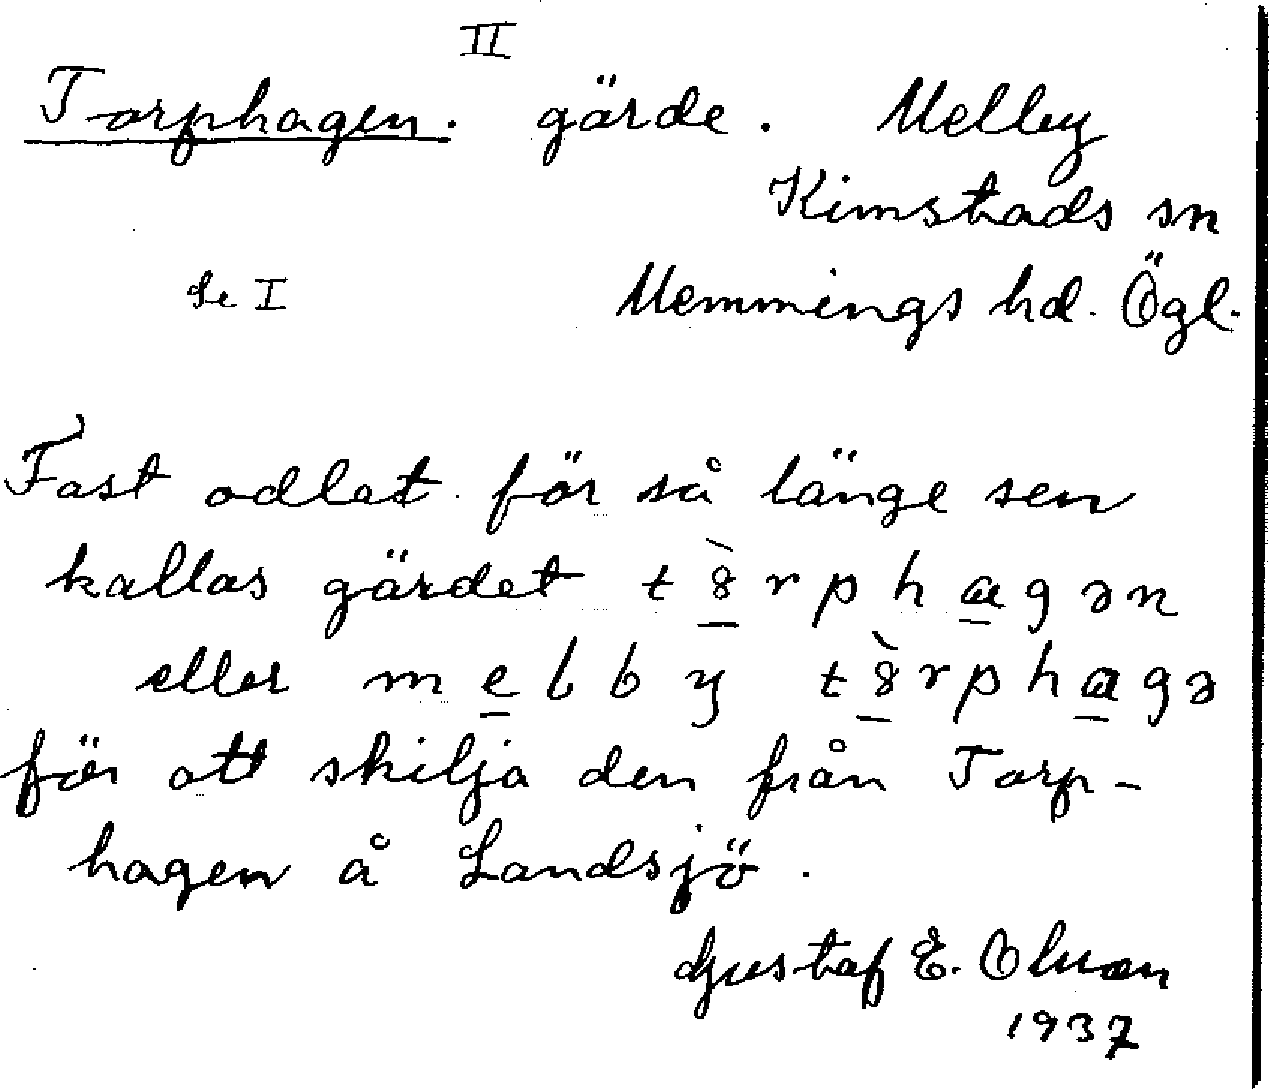 II
Torphagen. gärde. Melby
Kimstads sn
Se I Memmings hd. Ögl.
Fast odlat för så länge sen
kallas gärdet t 8̀ r p h a g ə n
eller m e l b y t 8̀ r p h a g ə
för att skilja den från Torp-
hagen å Landsjö.
Gustaf E. Olsson
1937